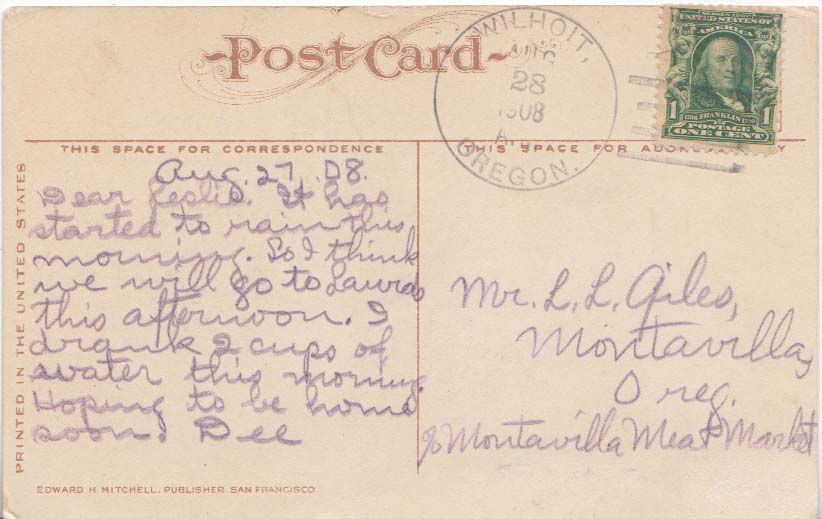 Post Card
WILHOIT,
AUG
28
1908
A.M.
OREGON.
SERIES 1902
UNITED STATES OF
AMERICA
1 1706 FRANKLIN 1790 1
POSTAGE
ONE CENT
THIS SPACE FOR CORRESPONDENCE
THIS SPACE FOR ADDRESS ONLY
PRINTED IN THE UNITED STATES
Aug. 27, 08.
Dear Leslie. It has
started to rain this
morning. So I think
we will go to Lauras
this afternoon. I
drank 2 cups of
water this morning.
Hoping to be home
soon. Dee
Mr. L. L. Giles,
Montavilla,
Oreg.
c/o Montavilla Meat Market
EDWARD H. MITCHELL, PUBLISHER, SAN FRANCISCO.